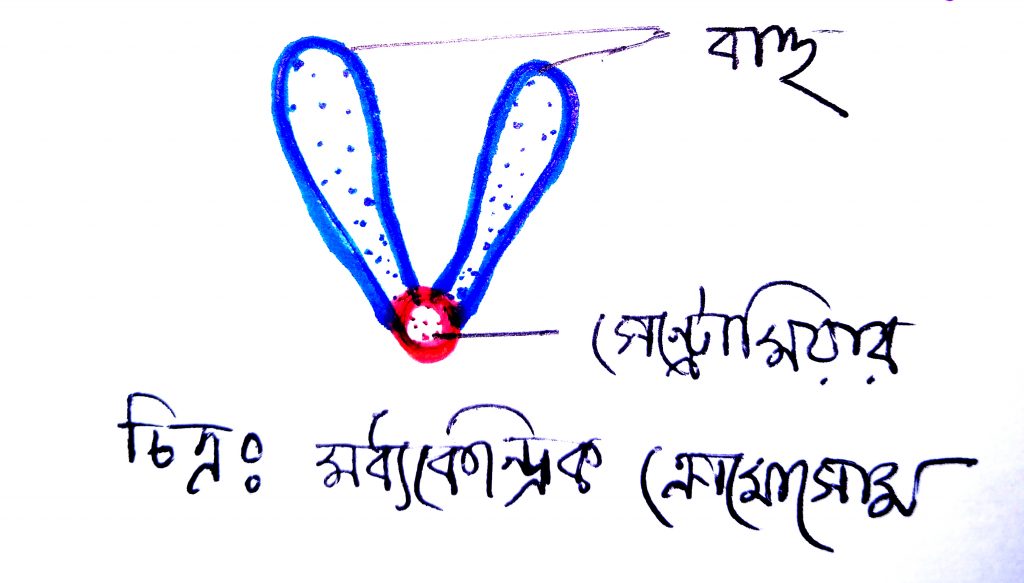 বাহু
সেন্ট্রোমিয়ার
চিত্রঃ মধ্যকেন্দ্রিক ক্রোমোসোম